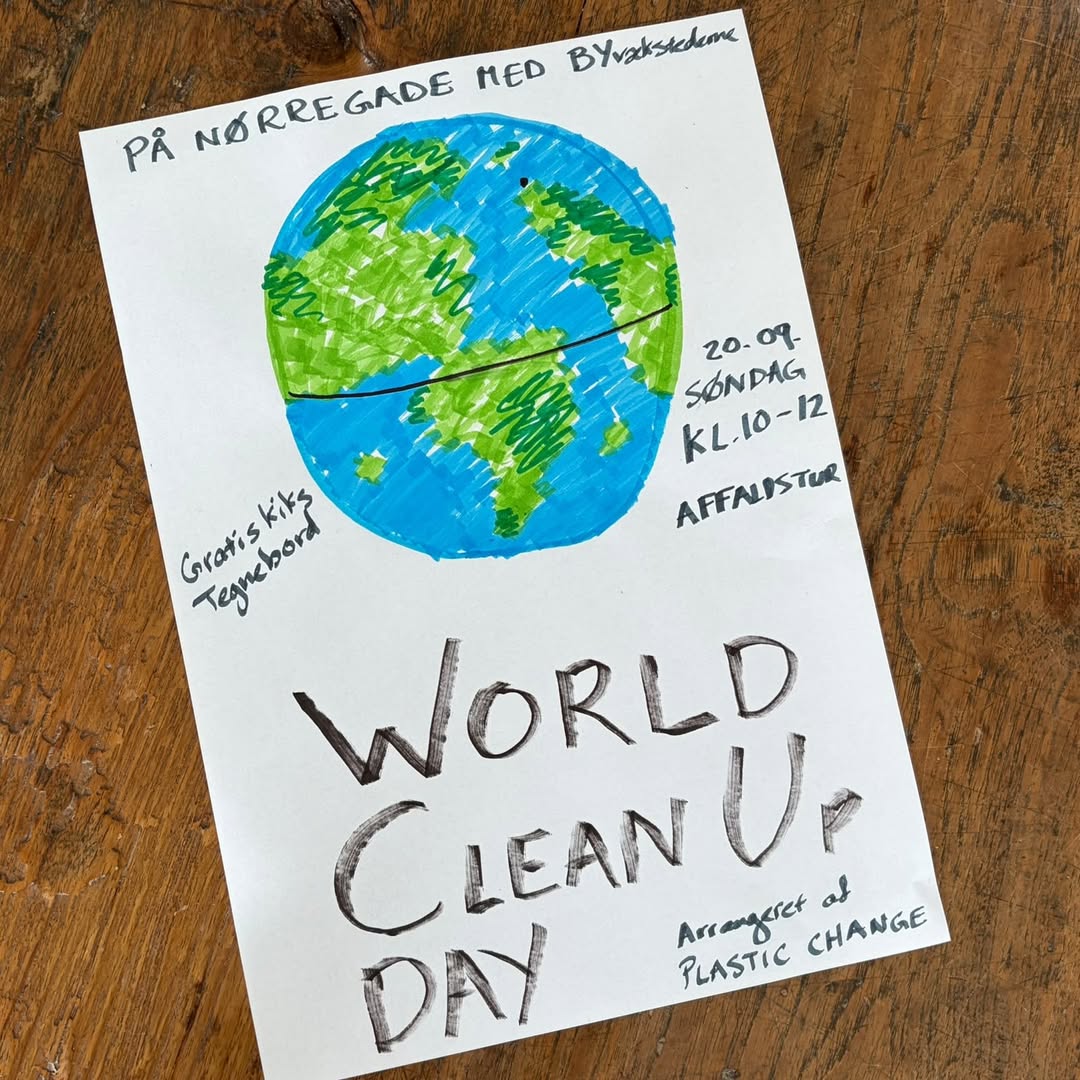 PÅ NØRREGADE MED BYvækstederne
20-09-
SØNDAG
KL.10-12
AFFALDSTUR
Gratis kiks
Tegnebord
WORLD
CLEAN UP
DAY
Arrangeret af
PLASTIC CHANGE